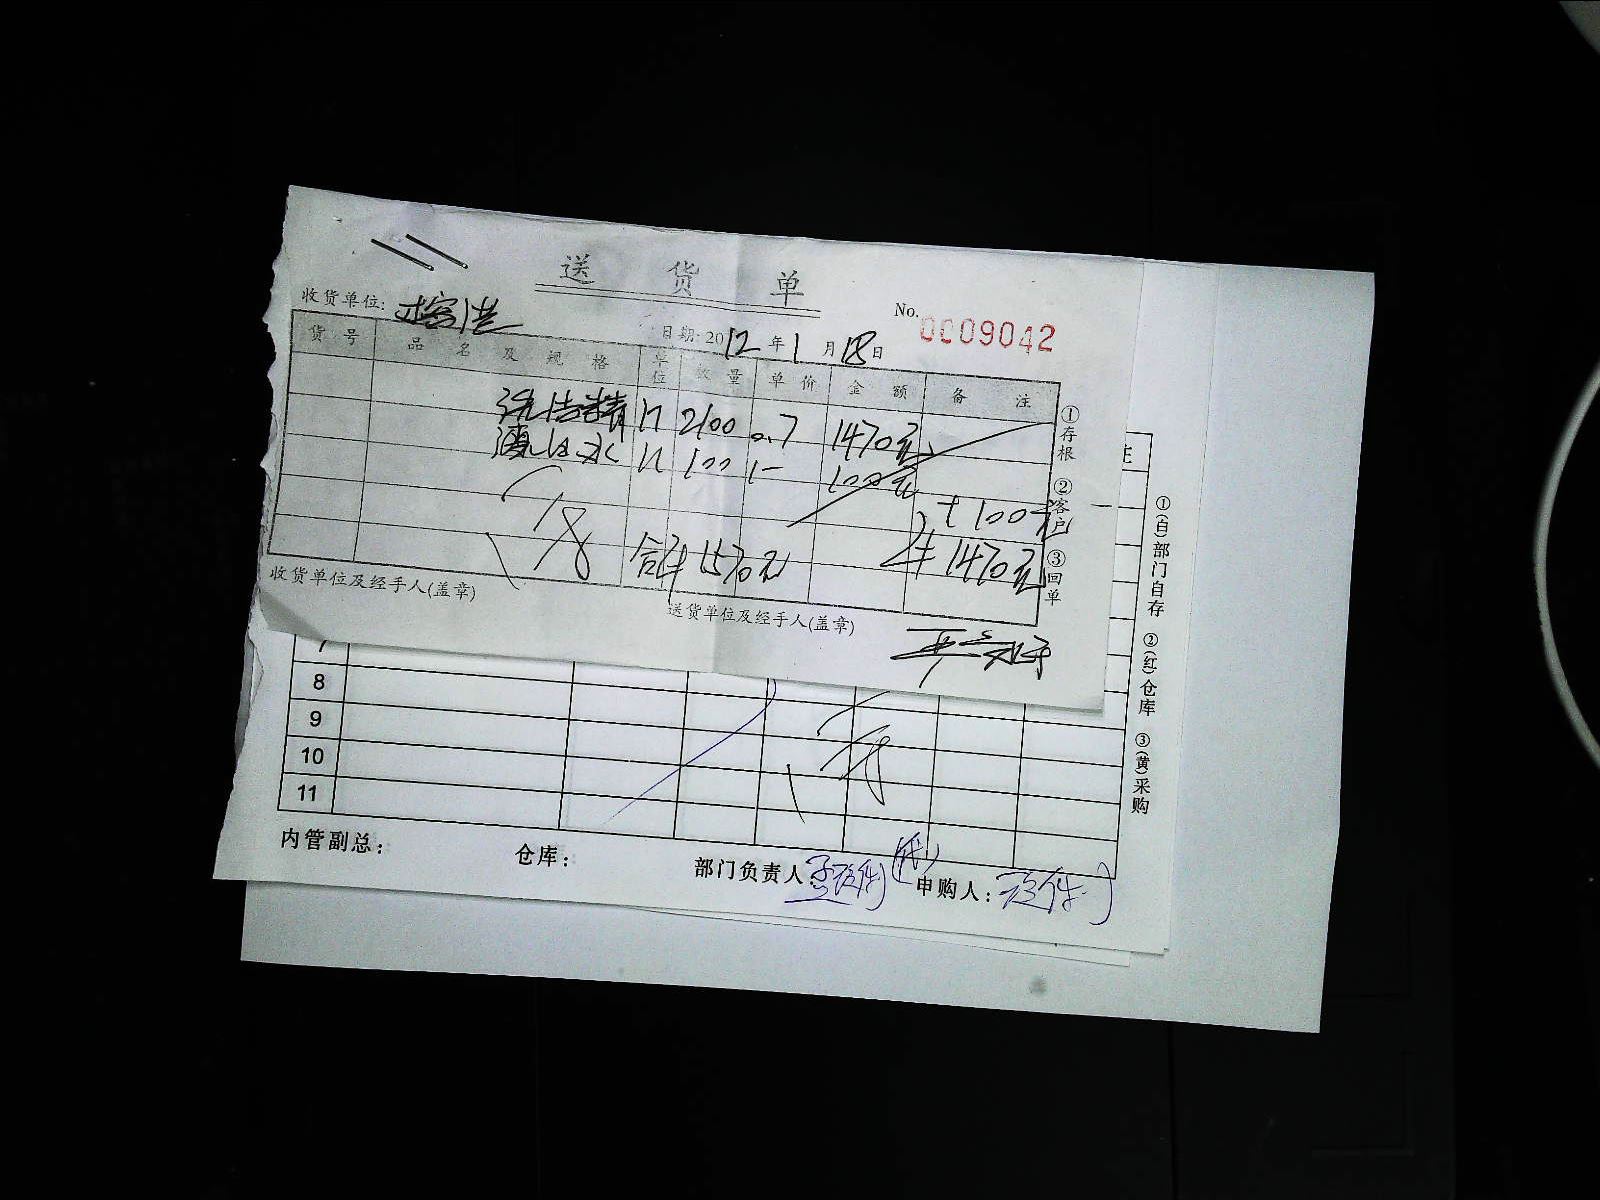 送货单
No. 0009042
收货单位:
日期: 2012年1月18日
货号 品名及规格 单位 数量 单价 金额 备注
洗洁精 2100 0.7 1470元
漂白水 100 1- 100元
100元
合计 1570元 1470元
①存根 ②客户 ③回单
收货单位及经手人(盖章)
送货单位及经手人(盖章)
注
7
8
9
10
11
①(白)部门自存 ②(红)仓库 ③(黄)采购
内管副总: 仓库: 部门负责人: 申购人: